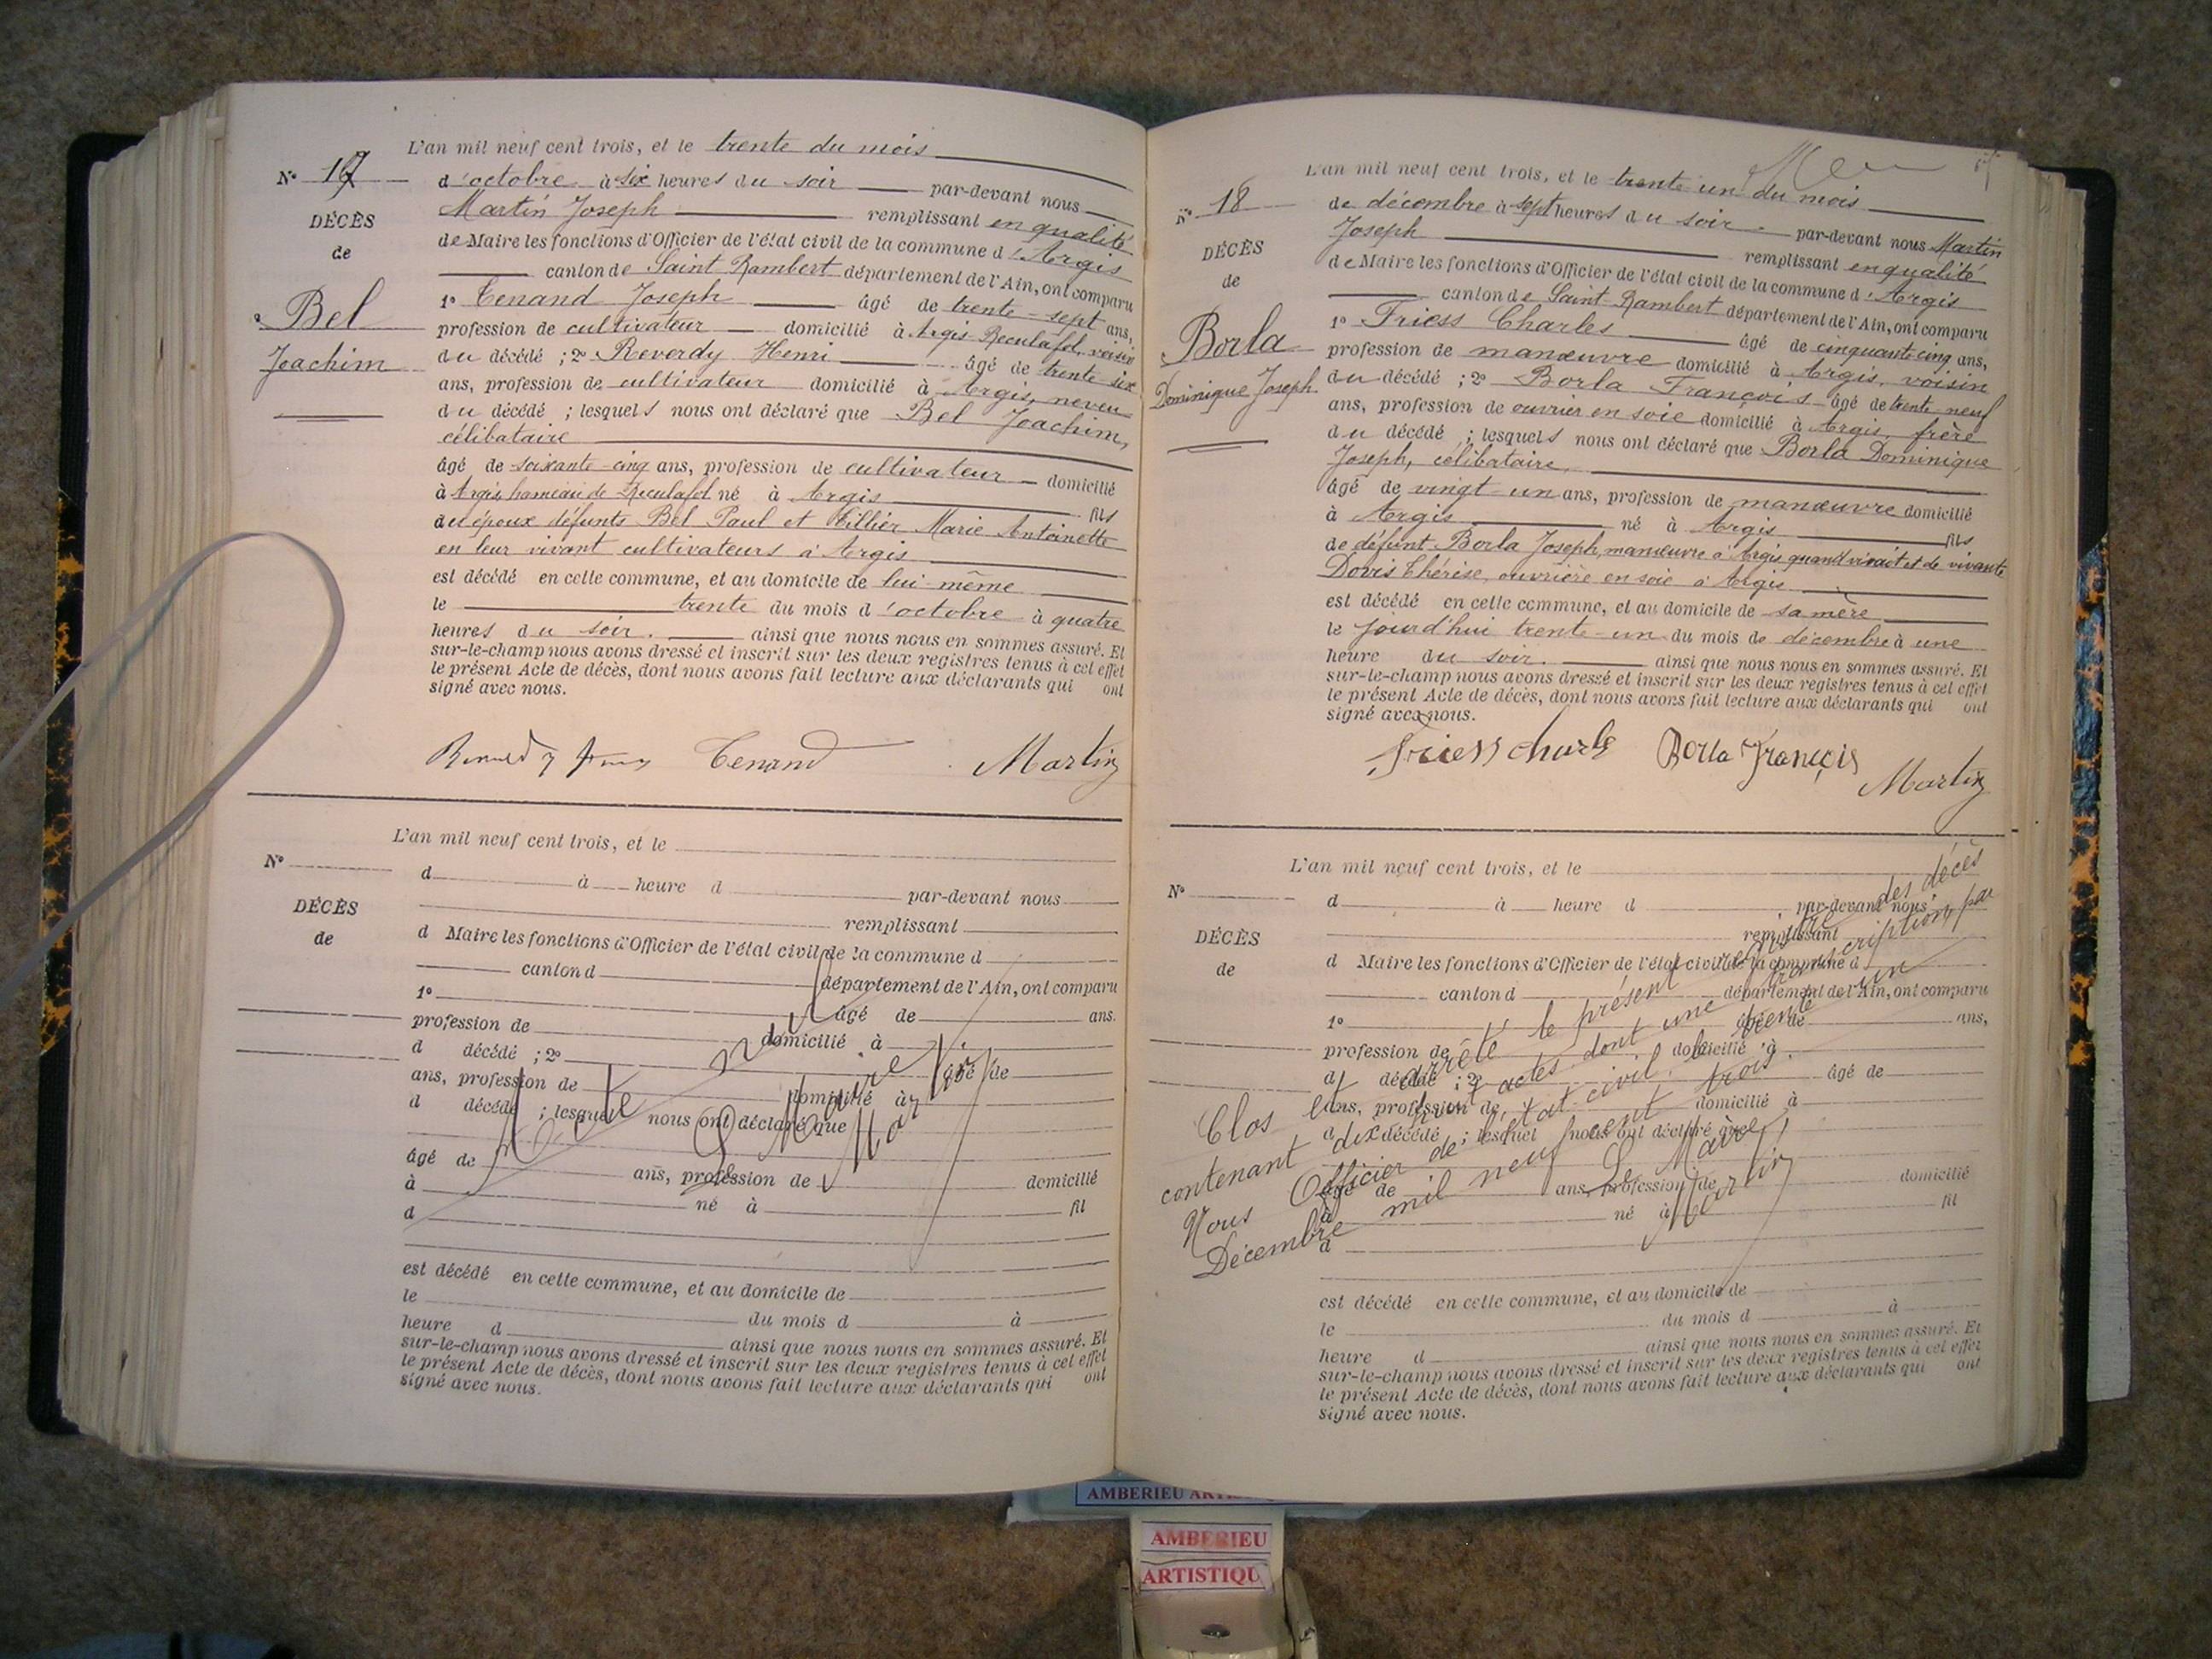 L'an mil neuf cent trois, et le trente du mois
N° 17
d'octobre à six heures du soir par-devant nous
Martin Joseph remplissant en qualité
DÉCÈS
de
Bel
Joachim
de Maire les fonctions d'Officier de l'état civil de la commune d'Argis
canton de Saint Rambert département de l'Ain, ont comparu
1° Tenand Joseph âgé de trente-sept ans,
profession de cultivateur domicilié à Argis-Reculafol, voisin
du décédé ; 2° Reverdy Henri âgé de trente-six
ans, profession de cultivateur domicilié à Argis, neveu
du décédé ; lesquels nous ont déclaré que Bel Joachim,
célibataire
âgé de soixante-cinq ans, profession de cultivateur domicilié
à Argis hameau de Reculafol né à Argis fils
des époux défunts Bel Paul et Tillier Marie Antoinette
en leur vivant cultivateurs à Argis
est décédé en cette commune, et au domicile de lui-même
le trente du mois d'octobre à quatre
heures du soir. ainsi que nous nous en sommes assuré. Et
sur-le-champ nous avons dressé et inscrit sur les deux registres tenus à cet effet
le présent Acte de décès, dont nous avons fait lecture aux déclarants qui ont
signé avec nous.
Tenand Martin
L'an mil neuf cent trois, et le
N°
d à heure d par-devant nous
remplissant
DÉCÈS
de
d Maire les fonctions d'Officier de l'état civil de la commune d
canton d département de l'Ain, ont comparu
1° âgé de ans.
profession de domicilié à
d décédé ; 2° âgé de
ans, profession de domicilié à
d décédé ; lesquel nous ont déclaré que
âgé de ans, profession de domicilié
à né à fil
d
est décédé en cette commune, et au domicile de
le du mois d à
heure d ainsi que nous nous en sommes assuré. Et
sur-le-champ nous avons dressé et inscrit sur les deux registres tenus à cet effet
le présent Acte de décès, dont nous avons fait lecture aux déclarants qui ont
signé avec nous.
Acte nul
Le Maire
Martin
L'an mil neuf cent trois, et le trente un du mois
N° 18
de décembre à sept heures du soir par-devant nous Martin
Joseph remplissant en qualité
DÉCÈS
de
Borla
Dominique Joseph
de Maire les fonctions d'Officier de l'état civil de la commune d'Argis
canton de Saint-Rambert département de l'Ain, ont comparu
1° Friess Charles âgé de cinquante cinq ans,
profession de manœuvre domicilié à Argis, voisin
du décédé ; 2° Borla François âgé de trente neuf
ans, profession de ouvrier en soie domicilié à Argis, frère
du décédé ; lesquels nous ont déclaré que Borla Dominique
Joseph, célibataire,
âgé de vingt-un ans, profession de manœuvre domicilié
à Argis né à Argis fils
de défunt Borla Joseph, manœuvre à Argis quand vivait et de vivante
Dovis Thérèse, ouvrière en soie à Argis
est décédé en cette commune, et au domicile de sa mère
le jourd'hui trente-un du mois de décembre à une
heure du soir. ainsi que nous nous en sommes assuré. Et
sur-le-champ nous avons dressé et inscrit sur les deux registres tenus à cet effet
le présent Acte de décès, dont nous avons fait lecture aux déclarants qui ont
signé avec nous.
Friess Charle Borla François Martin
L'an mil neuf cent trois, et le
N°
d à heure d par-devant nous
remplissant
DÉCÈS
de
d Maire les fonctions d'Officier de l'état civil de la commune d
canton d département de l'Ain, ont comparu
1° âgé de ans,
profession de domicilié à
d décédé ; 2° âgé de
ans, profession de domicilié à
d décédé ; lesquel nous ont déclaré que
âgé de ans, profession de domicilié
à né à fil
d
est décédé en cette commune, et au domicile de
le du mois d à
heure d ainsi que nous nous en sommes assuré. Et
sur-le-champ nous avons dressé et inscrit sur les deux registres tenus à cet effet
le présent Acte de décès, dont nous avons fait lecture aux déclarants qui ont
signé avec nous.
Clos et arrêté le présent registre des décès
contenant dix huit actes dont une transcription, par
Nous Officier de l'état civil. le trente un
Décembre mil neuf cent trois.
Le Maire,
Martin
AMBERIEU
AMBERIEU
ARTISTIQU